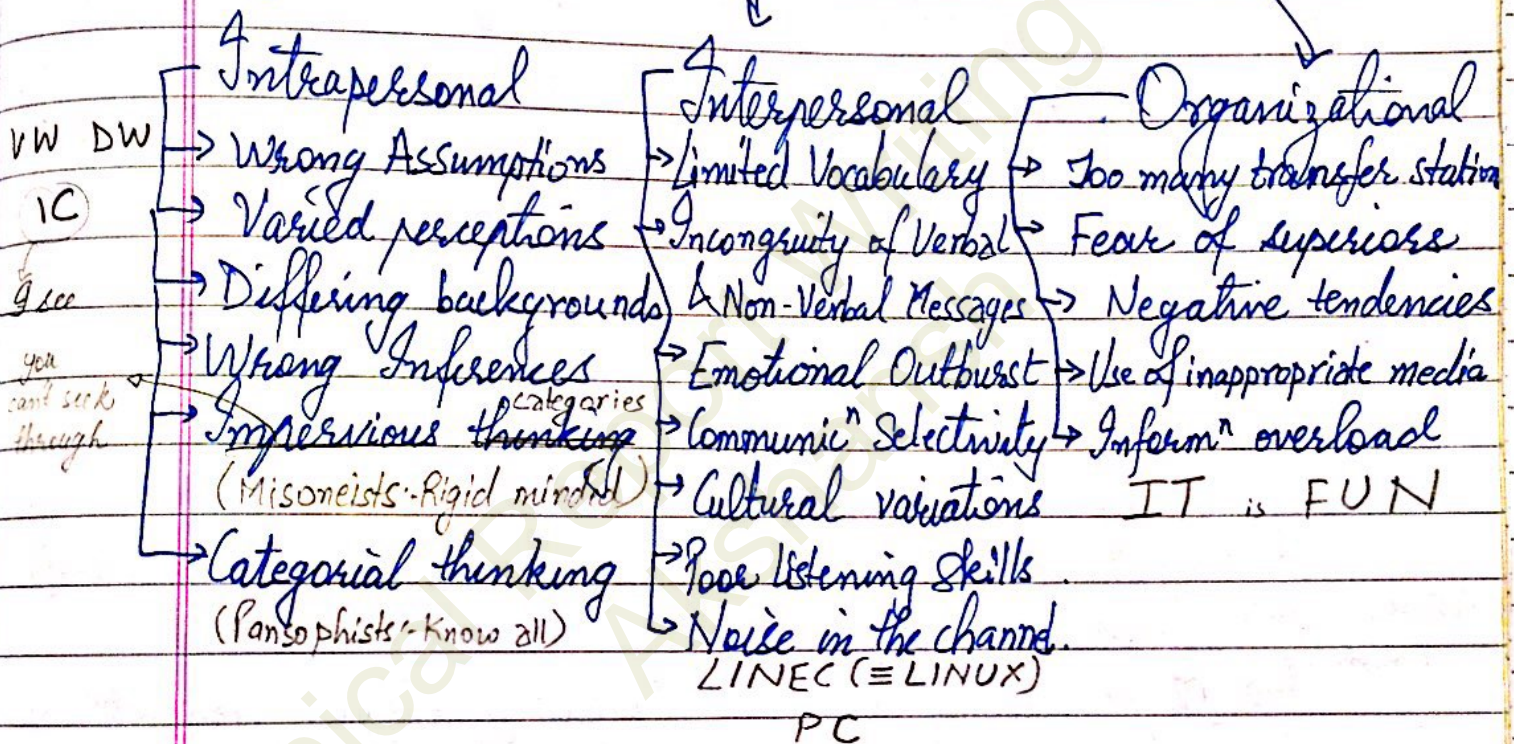 Intrapersonal
VW DW
IC
I see
you
can't seek
through
Wrong Assumptions
Varied perceptions
Differing backgrounds
Wrong Inferences
Impervious thinking categories
(Misoneists:-Rigid minded)
Categorial thinking
(Pansophists:-Know all)
Interpersonal
Limited Vocabulary
Incongruity of Verbal
& Non-Verbal Messages
Emotional Outburst
Communicⁿ Selectivity
Cultural variations
Poor listening skills.
Noise in the channel.
LINEC (≡ LINUX)
PC
Organizational
Too many transfer station
Fear of superiors
Negative tendencies
Use of inappropriate media
Informⁿ overload
IT is FUN
Writing
Akshansh